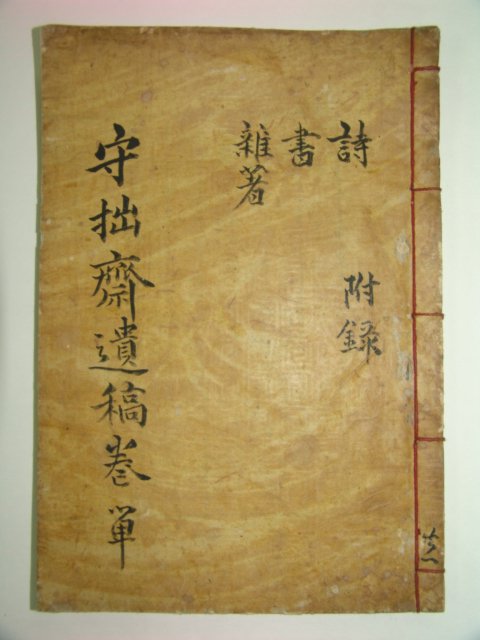 守拙齋遺稿卷單
詩
書
雜著
附錄